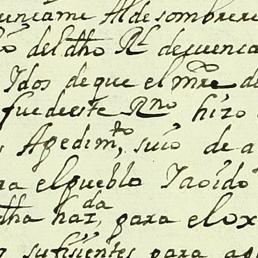 unçiame Al de sombrere
del dho Rl decuenca
Idos deque el mre de
fue deeste Rno hizo
Apedimto, suio de a
ra el pueblo Iaoido
dha hazda, para el ox
sufisientes para ag